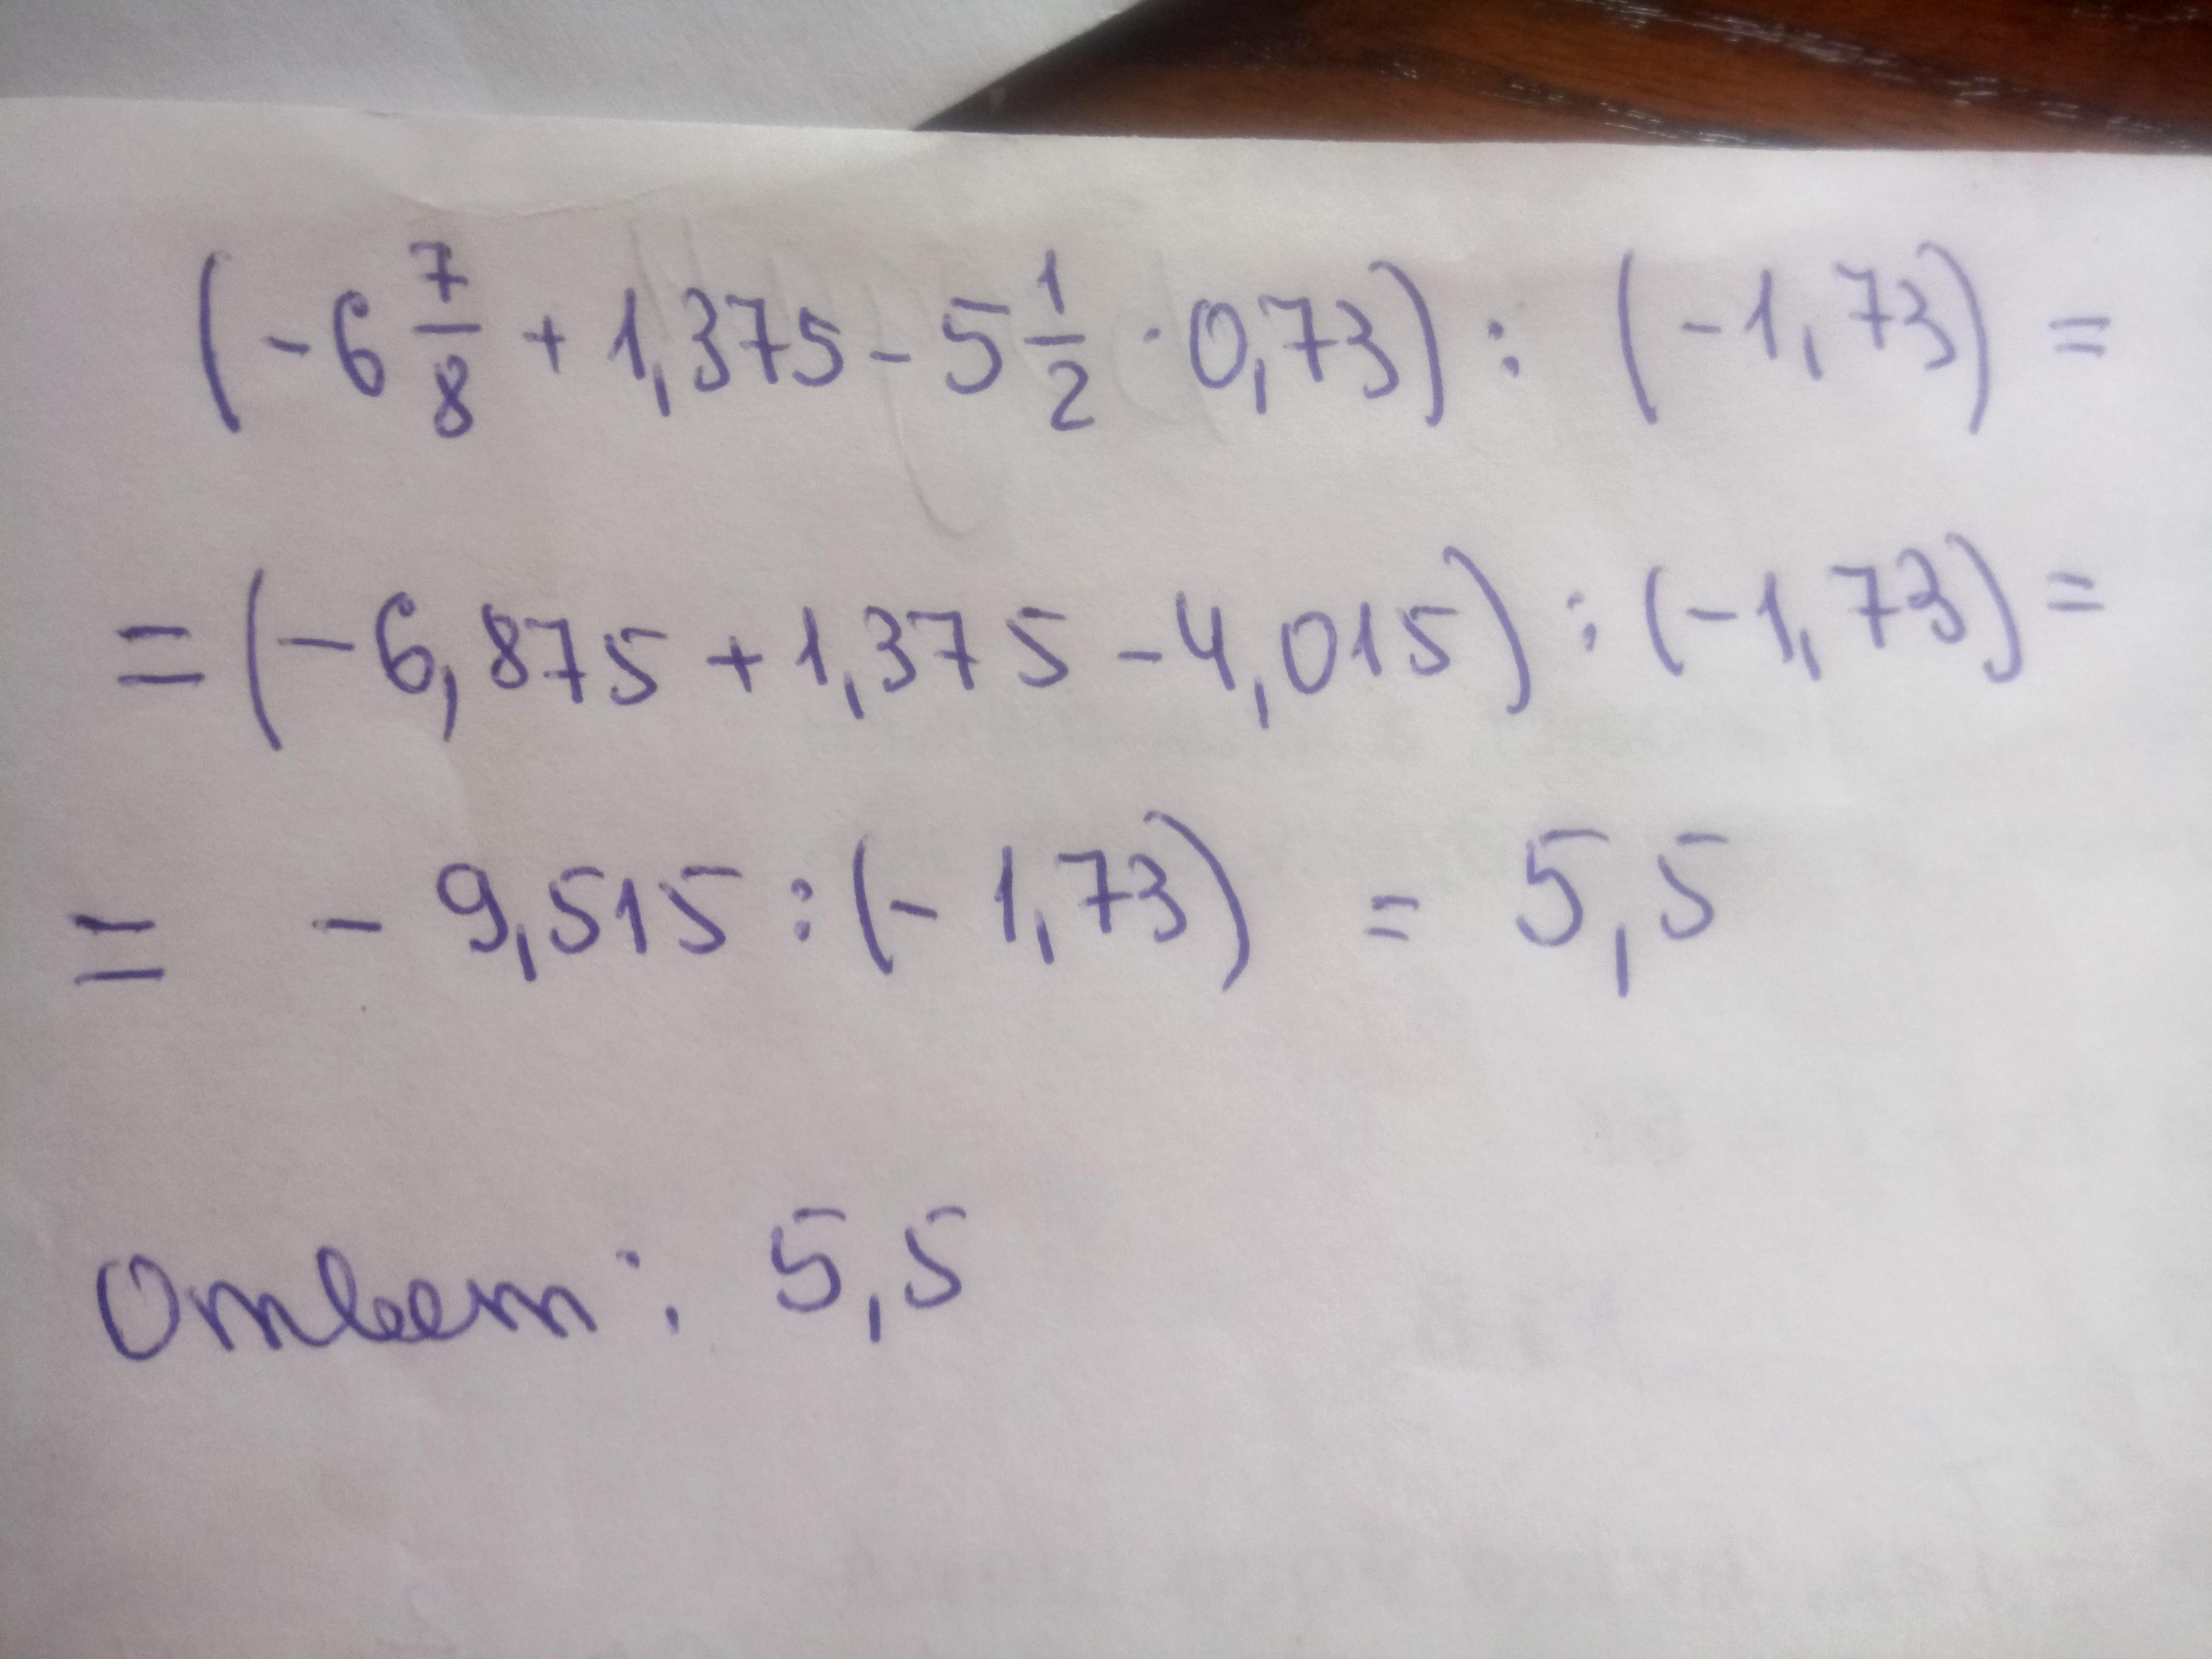 (-6 7/8 + 1,375 - 5 1/2 · 0,73) : (-1,73) =
= (-6,875 + 1,375 - 4,015) : (-1,73) =
= - 9,515 : (-1,73) = 5,5
Ответ: 5,5